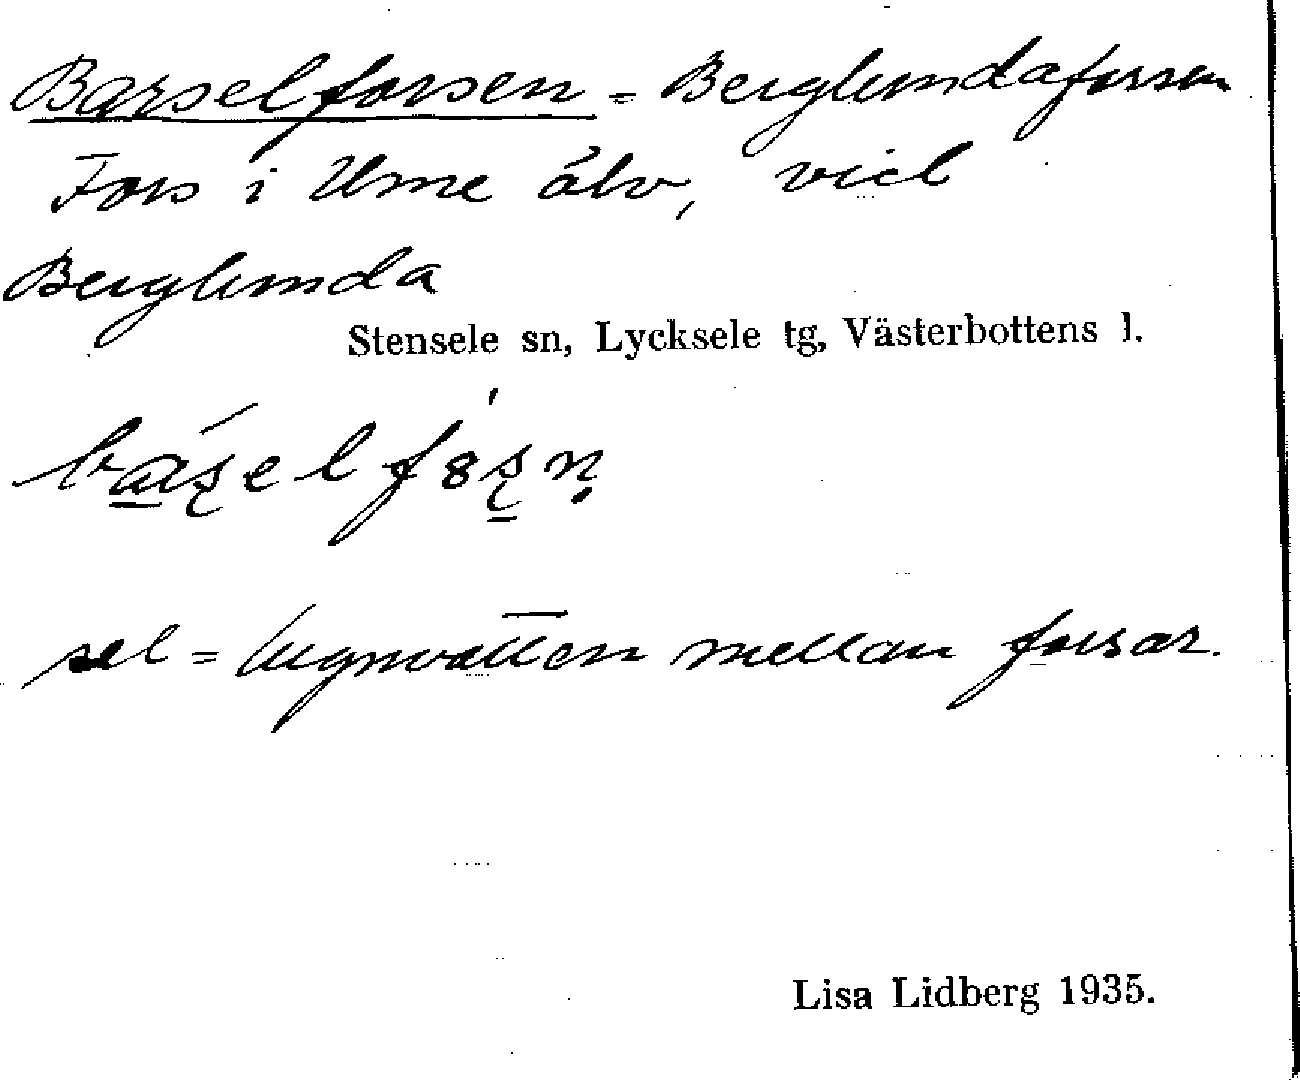 Barselforsen = Berglundaforsen
Fors i Ume älv, vid
Berglunda
Stensele sn, Lycksele tg, Västerbottens l.
sel = lugnvatten mellan forsar.
Lisa Lidberg 1935.